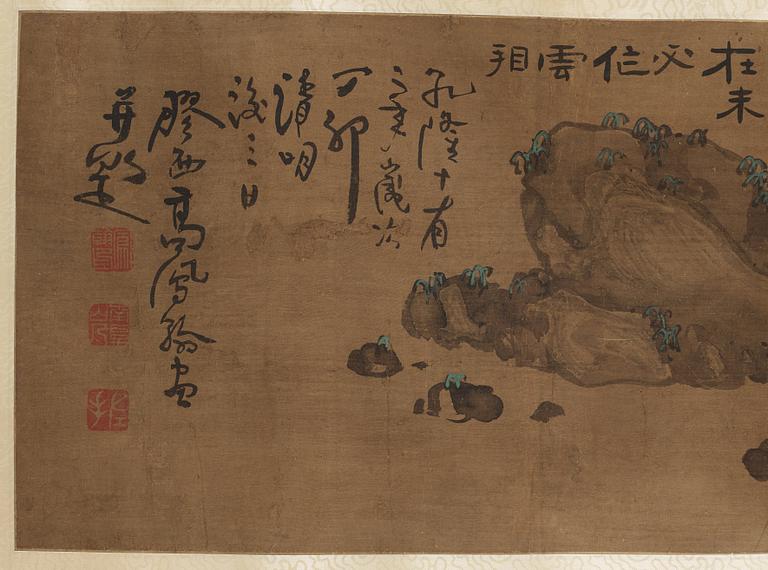 在未
必
信
雲
相
乾隆十有
二年歲次
丁卯
清明
後三日
膠西高鳳翰畫
并題
左手